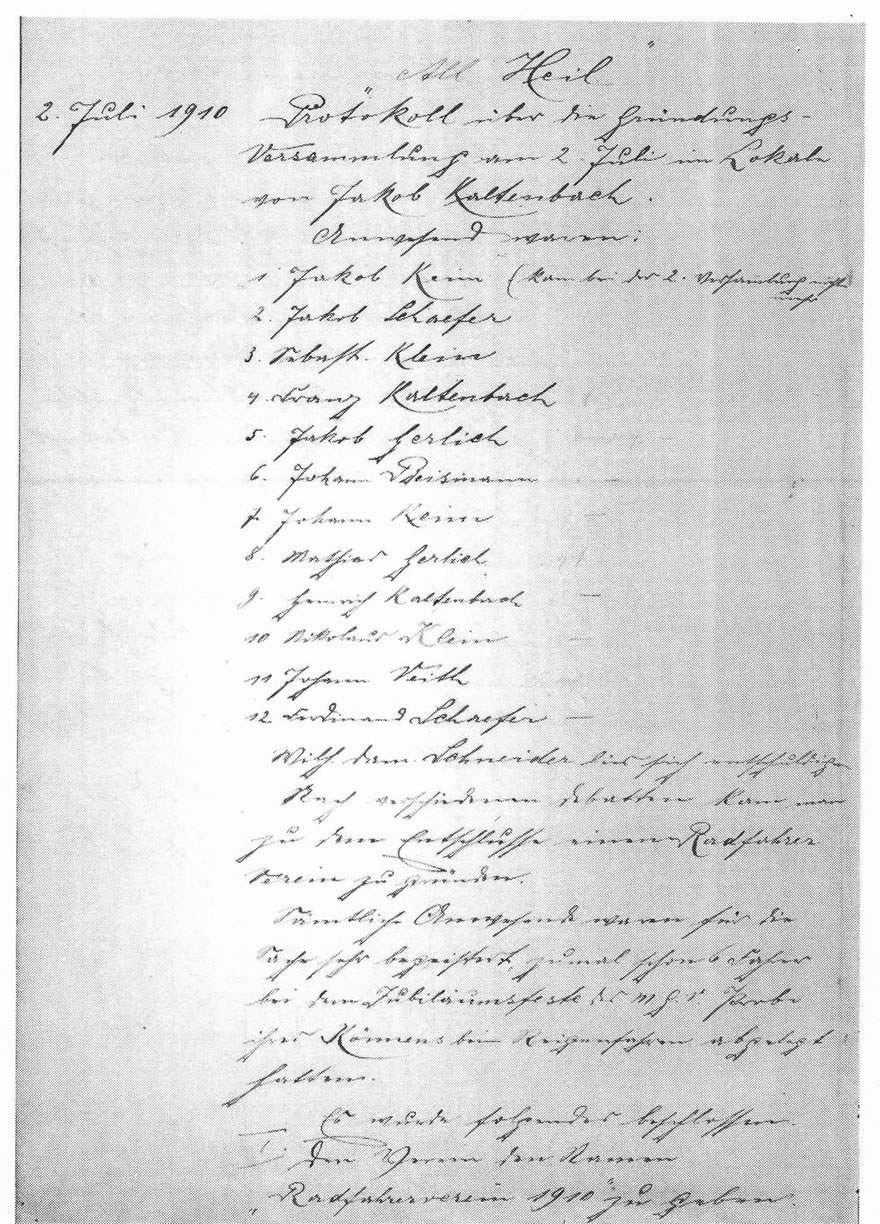 "All Heil"
2. Juli 1910 Protokoll über die Gründungs-
Versammlung am 2. Juli im Lokale
von Jakob Kaltenbach.
Anwesend waren:
1. Jakob Keim (kam bei der 2. Versamlung nicht
mehr
2. Jakob Schaefer
3. Sebast. Klein
4. Franz Kaltenbach
5. Jakob Gerlich
6. Johann Beismann
7. Johann Keim
8. Mathias Gerlich
9. Heinrich Kaltenbach
10 Nikolaus Klein
11 Johann Veith
12. Ferdinand Schaefer
Wilh. Dam. Schneider lies sich entschuldigen
Nach verschiedenen Debatten kam man
zu dem Entschlusse einen Radfahrer
Verein zu gründen.
Sämtliche Anwesende waren für die
Sache sehr begeistert, zumal schon 6 Fahrer
bei dem Jubiläumsfeste des M.G.V. Probe
ihres Könnens beim Reigenfahren abgelegt
hatten.
Es wurde folgendes beschlossen.
1. Den Verein den Namen
"Radfahrerverein 1910" zu geben.